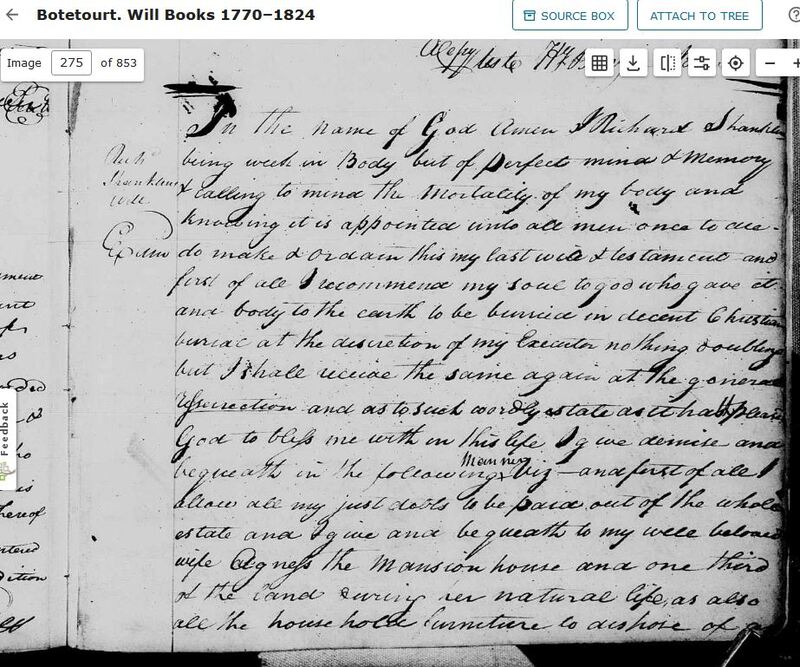 Botetourt. Will Books 1770–1824
SOURCE BOX
ATTACH TO TREE
Image 275 of 853
Feedback
A Copy Teste
In the name of God Amen I Richard Shanklin
being week in Body but of perfect mind & Memory
& calling to mind the Mortality of my body and
knowing it is appointed unto all men once to die
do make & ordain this my last will & testament and
first of all I recommend my soul to god who gave it
and body to the earth to be burried in decent Christian
burial at the discretion of my Executor nothing doubting
but I shall receive the same again at the general
resurection and as to such wordly estate as it hath pleased
God to bless me with in this life I give demise and
bequeath in the following Manner viz — and first of all I
allow all my just debts to be paid out of the whole
estate and I give and bequeath to my well beloved
wife Agness the Mansion house and one third
of the land during her natural life, as also
all the household furniture to dispose of
Rich
Shanklins
Will
Exam